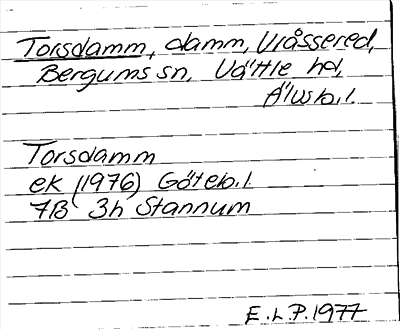 Torsdamm, damm, Vråssered,
Bergums sn, Vättle hd,
Älvsb.l.
Torsdamm
ek (1976) Göteb.l.
7B 3h Stannum
E.L.P. 1977